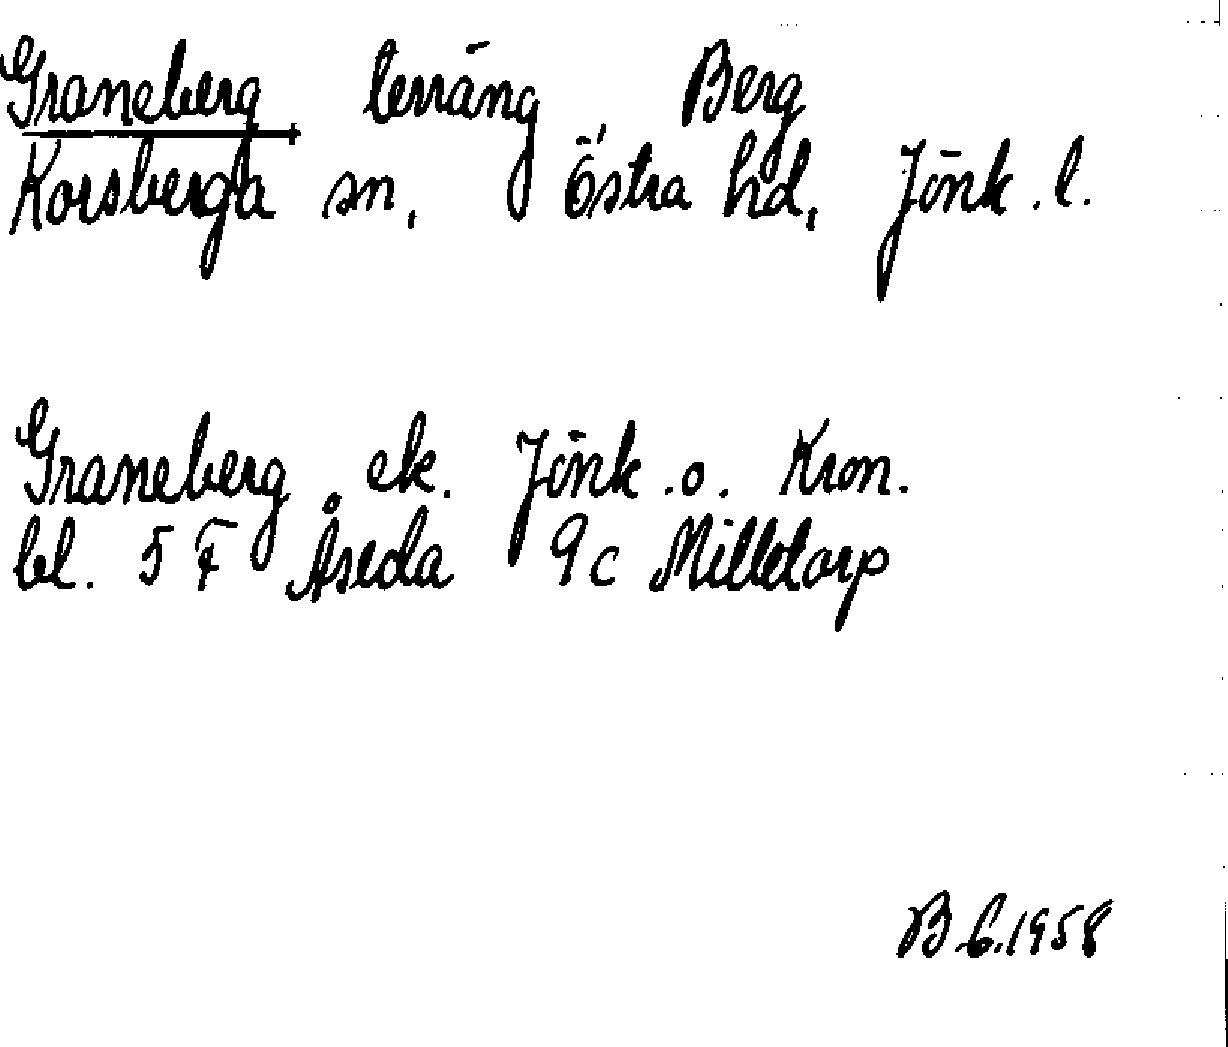 Graneberg terräng Berg
Korsberga sn, Östra hd, Jönk. l.
Graneberg ek. Jönk. o. Kron.
bl. 5 F Åseda 9c Milletorp
B 6.1958